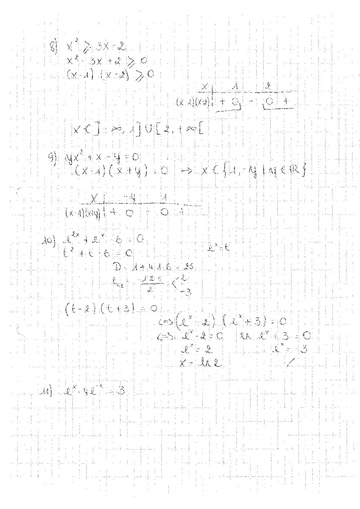 8) x² ≥ 3x - 2
x² - 3x + 2 ≥ 0
(x-1)(x-2) ≥ 0
x | 1 2
(x-1)(x-2) | + 0 - 0 +
x ∈ ]-∞, 1] ∪ [2, +∞[
9) yx² + x - y = 0
(x-1)(x+y) = 0 → x ∈ {1, -y | y ∈ ℝ}
x | -y 1
(x-1)(x+y) | + 0 - 0 +
10) e²ˣ + eˣ - 6 = 0
eˣ = t
t² + t - 6 = 0
D = 1 + 4.1.6 = 25
t₁,₂ = = 2
-3
(t-2)(t+3) = 0
⇔ (eˣ - 2)(eˣ + 3) = 0
⇔ eˣ - 2 = 0 eˣ + 3 = 0
eˣ = 2 eˣ = 3
x = ln 2 /
11) eˣ - 4e⁻ˣ = 3